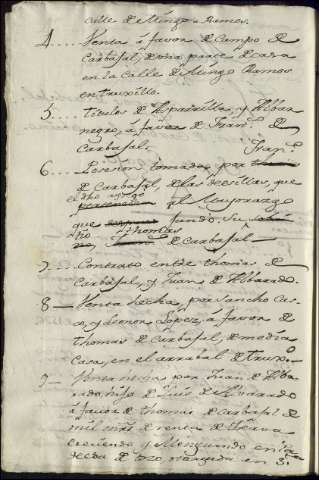 Calle de Mingo Ramos.
4.... Venta á favor de Campo de
Carbajal, de una parte de casa
en la Calle de Mingo Ramos
en truxillo.
5.... Titulos de Espadilla, y Albar
negro, á favor de Fran.co de
Carbajal.
6.... Posesion tomada por
de Carbajal, de las decillas, que
el Mayorazgo
que fundo, Su
tio Thomas de Carbajal
7.. Contrato entre thomas de
Carbajal, y Juan de Albarado.
8.. Venta hecha, por Sancho Ca
y Leonor Lopez, á favor de
thomas de Carbajal, de media
Casa, en el arrabal de trux.o
9.. Venta hecha por Juan de Alba
rado, hijo de Luis de Alvarado
á favor de thomas de Carbajal de
mil mrs de renta de Yerva
creciendo y Menguando en la
de